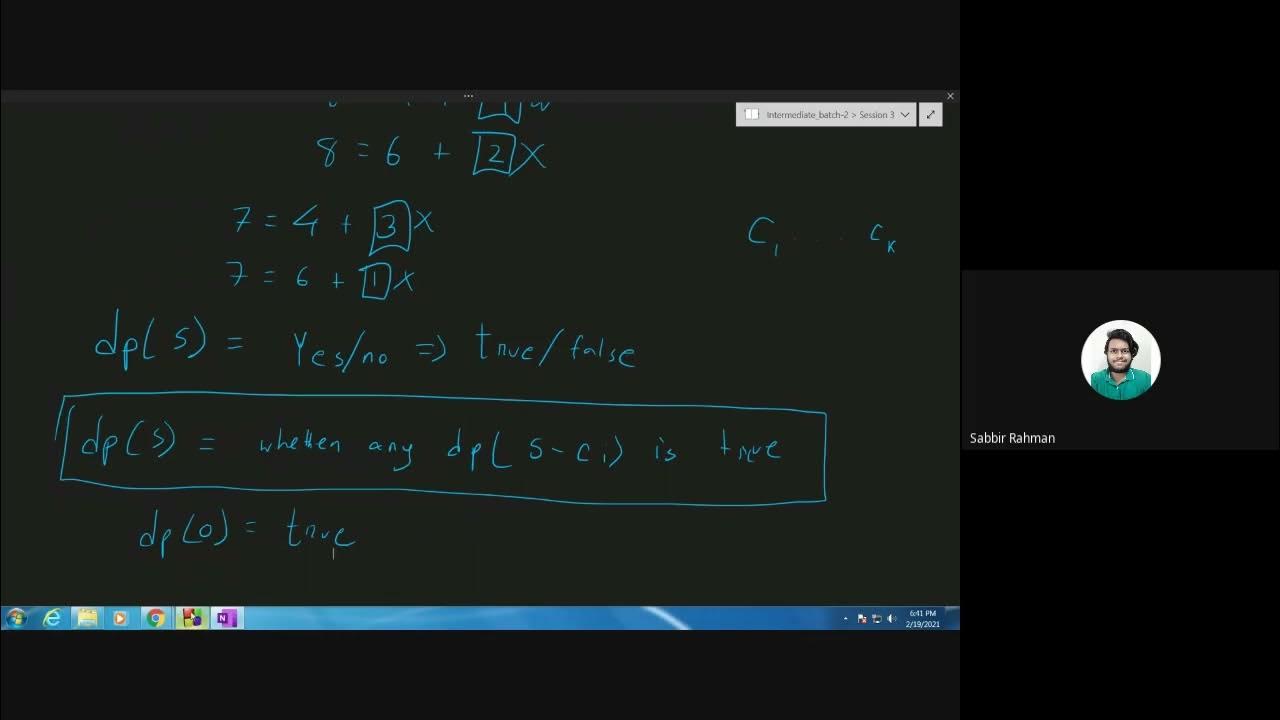 Intermediate_batch-2 > Session 3
8 = 6 + 2 X
7 = 4 + 3 X
C1 . . . . cK
7 = 6 + 1 X
dp(s) = Yes/no => true/false
dp(s) = whether any dp(s-ci) is true
dp(0) = true
Sabbir Rahman
6:41 PM
2/19/2021